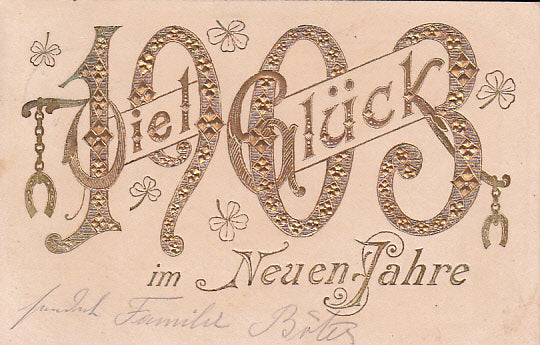 1903
Viel Glück
im Neuen Jahre
Familie